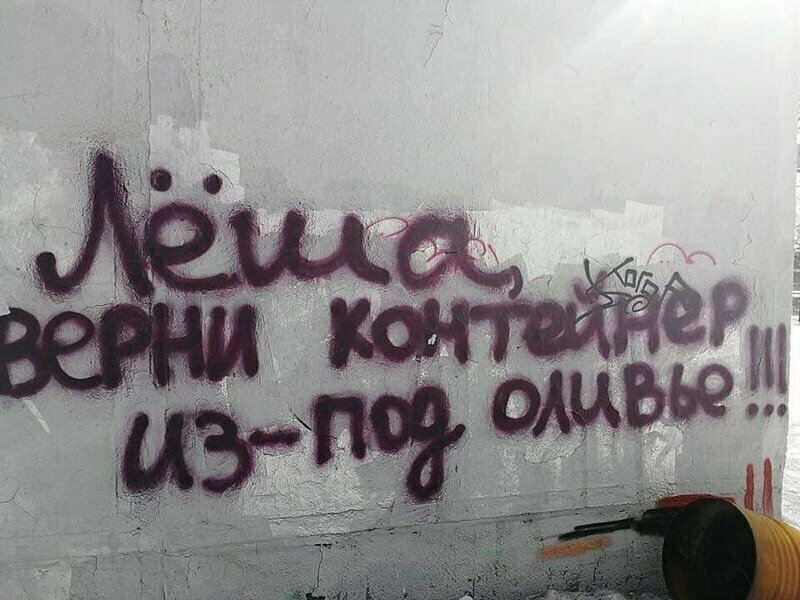 Лёша,
верни контейнер
из-под оливье!!!